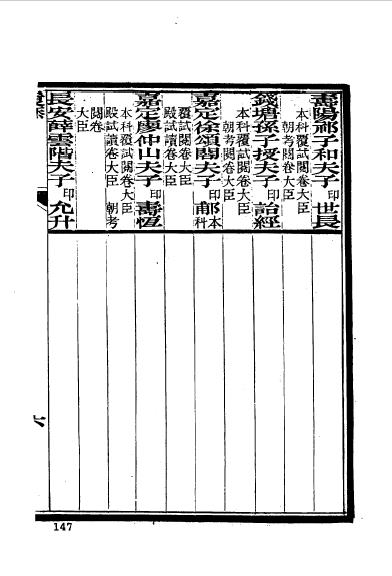 壽陽祁子和夫子印世長
本科覆試閱卷大臣
朝考閱卷大臣
錢塘孫子授夫子印詒經
本科覆試閱卷大臣
朝考閱卷大臣
嘉定徐頌閣夫子印郙本科
覆試閱卷大臣
殿試讀卷大臣
嘉定廖仲山夫子印壽恆
本科覆試閱卷大臣
殿試讀卷大臣 朝考
閱卷
大臣
長安薛雲階夫子印允升
六
147